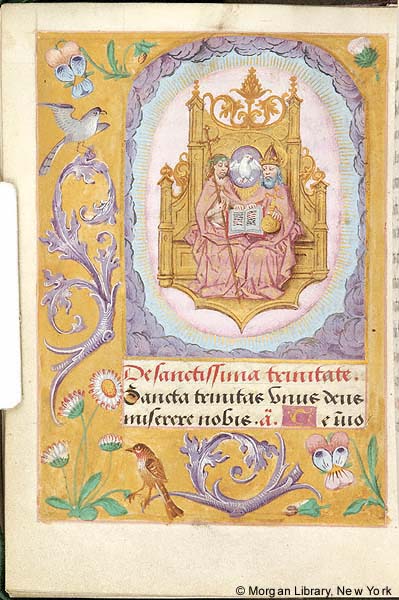 De sanctissima trinitate.
Sancta trinitas vnus deus
miserere nobis. a̅. Te i̅uo
© Morgan Library, New York